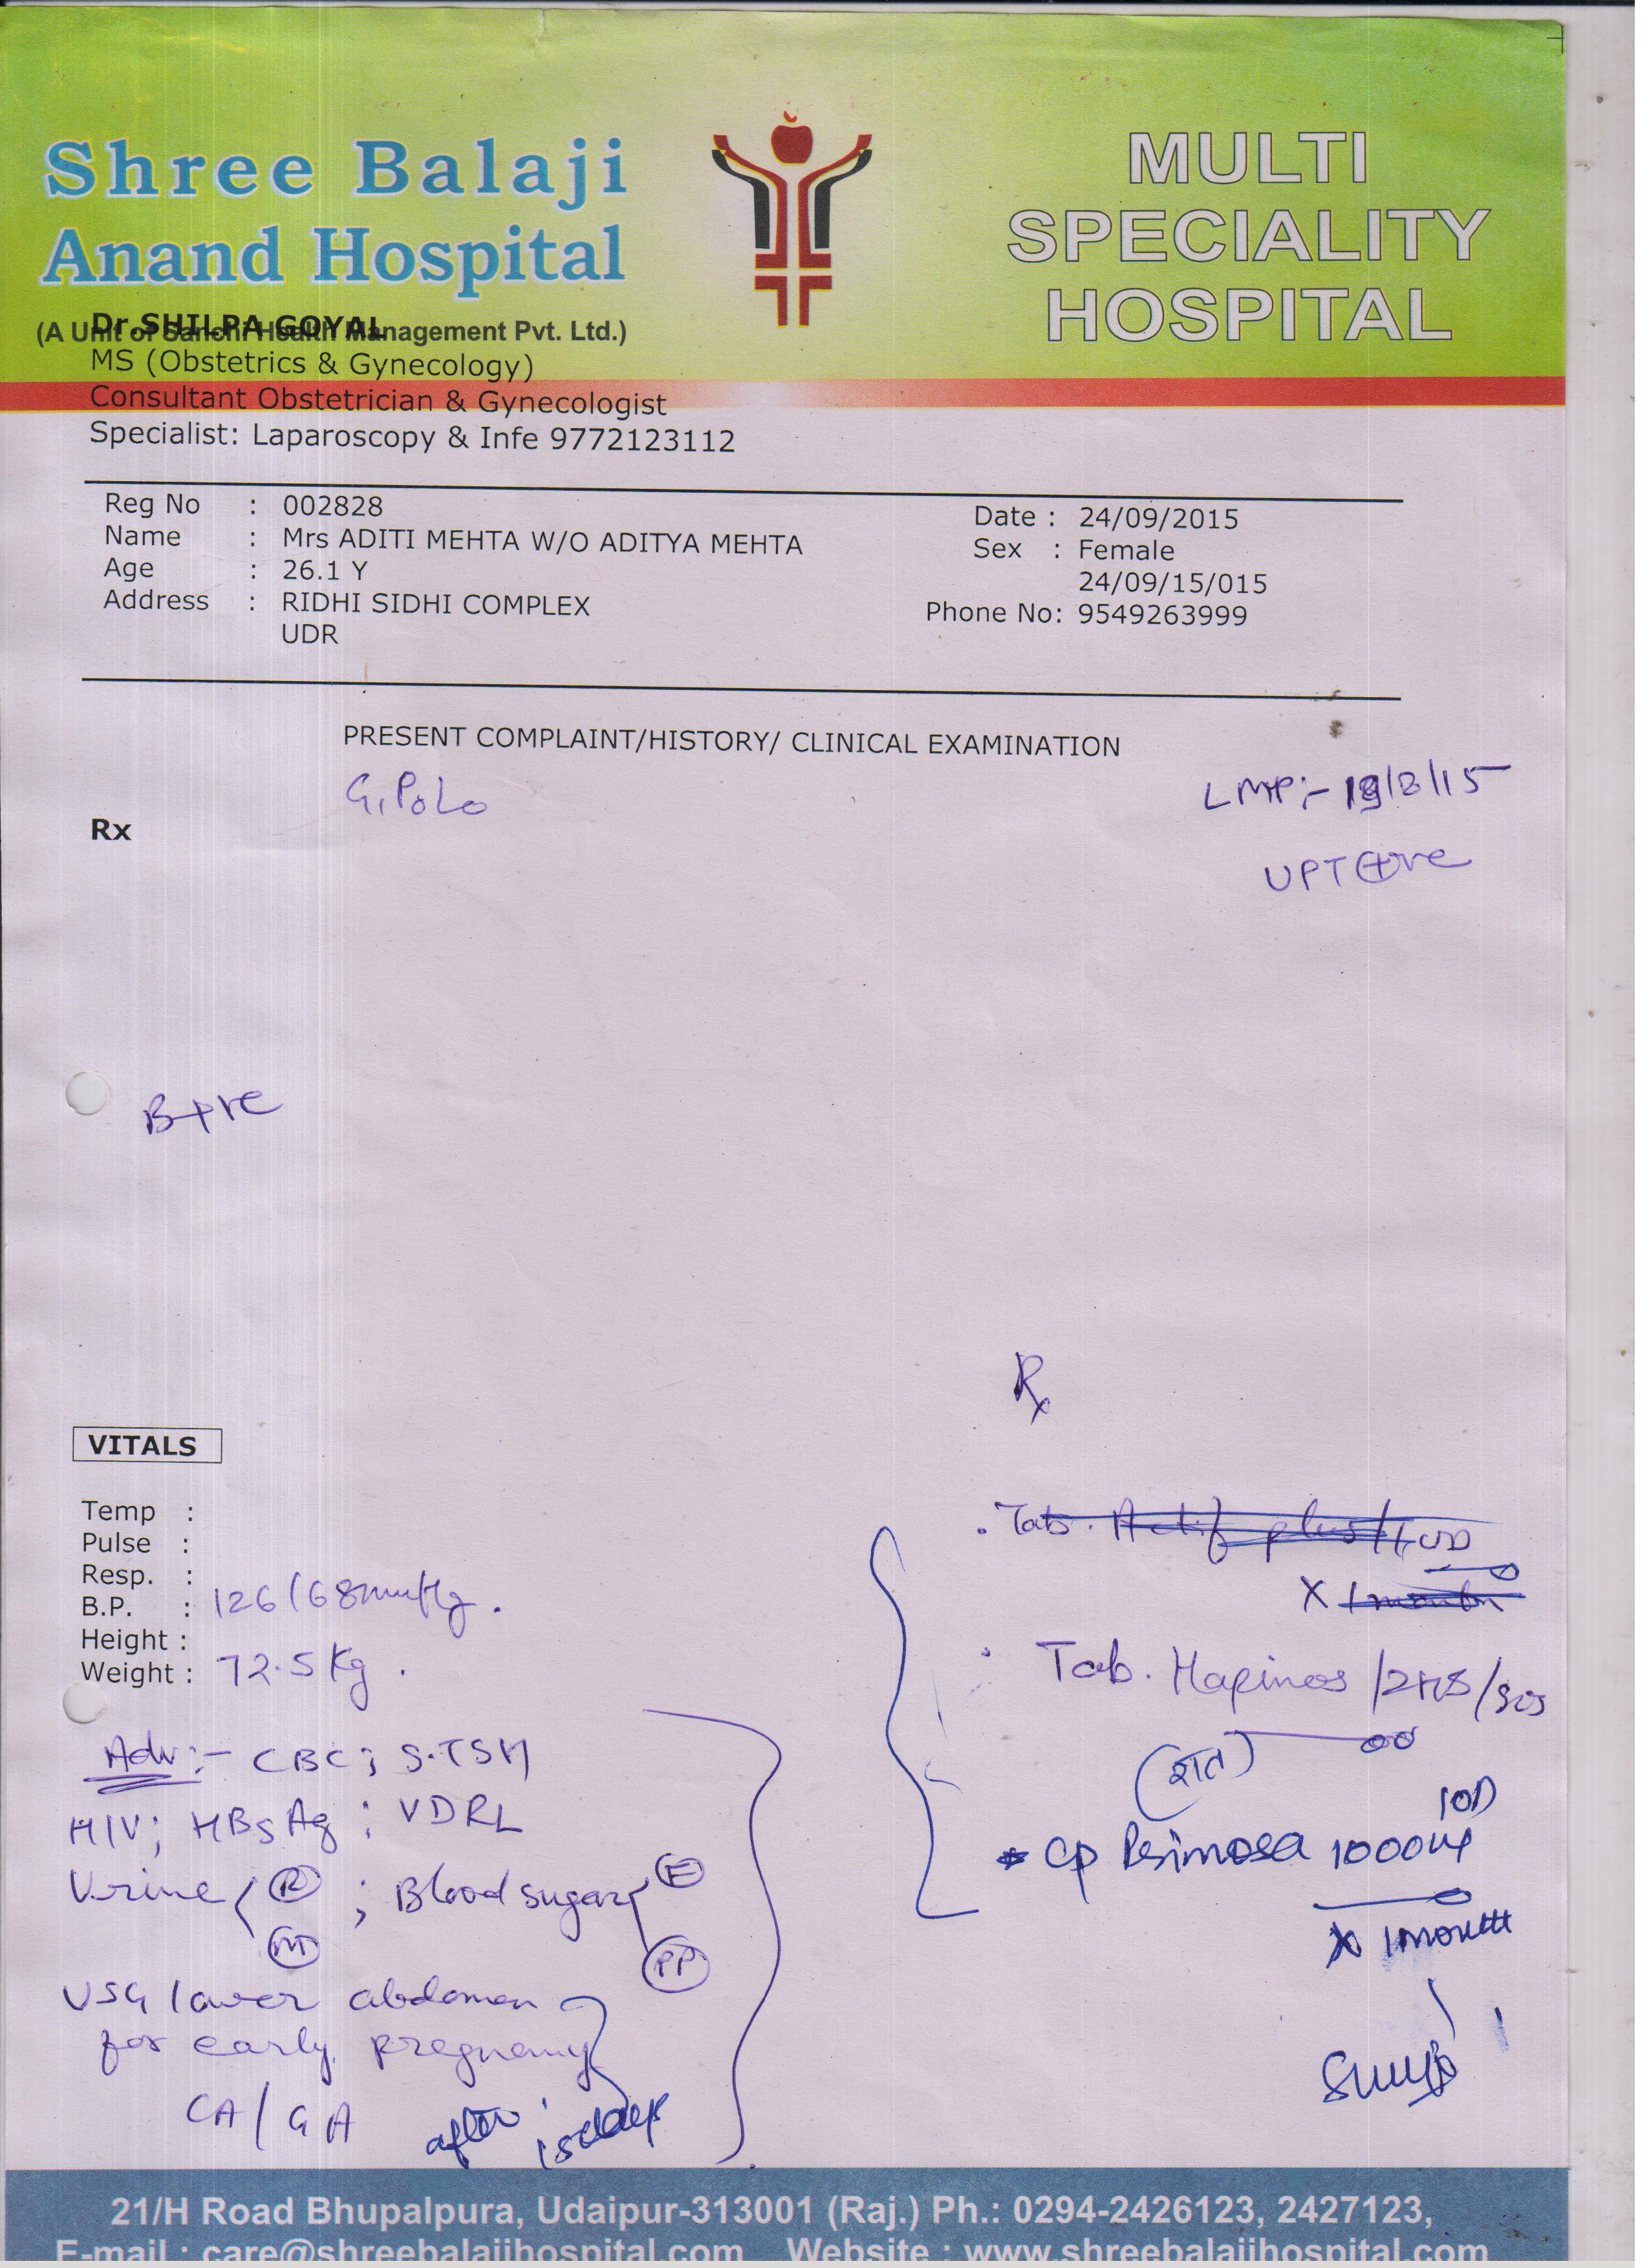 Shree Balaji
Anand Hospital
(A Unit of Sanchi Health Management Pvt. Ltd.)
MULTI
SPECIALITY
HOSPITAL
Dr.SHILPA GOYAL
MS (Obstetrics & Gynecology)
Consultant Obstetrician & Gynecologist
Specialist: Laparoscopy & Infe 9772123112
Reg No : 002828
Name : Mrs ADITI MEHTA W/O ADITYA MEHTA
Age : 26.1 Y
Address : RIDHI SIDHI COMPLEX
UDR
Date : 24/09/2015
Sex : Female
24/09/15/015
Phone No: 9549263999
PRESENT COMPLAINT/HISTORY/ CLINICAL EXAMINATION
G1P0L0
LMP:- /8/15
UPT ⊕ve
Rx
B+ve
Rx
VITALS
Temp :
Pulse :
Resp. :
B.P. : 126/68mmHg.
Height :
Weight : 72.5 Kg.
Adv:- CBC; S.TSH
HIV; HBsAg; VDRL
Urine R M ; Blood sugar F PP
USG lower abdomen
for early pregnancy
CA/GA after 15 days
Tab. plus/1 OD
X 1 month
Tab. /2HS/SOS
(रात)
Cp 1000 1OD
X 1 month
21/H Road Bhupalpura, Udaipur-313001 (Raj.) Ph.: 0294-2426123, 2427123,
E-mail : care@shreebalajihospital.com Website : www.shreebalajihospital.com